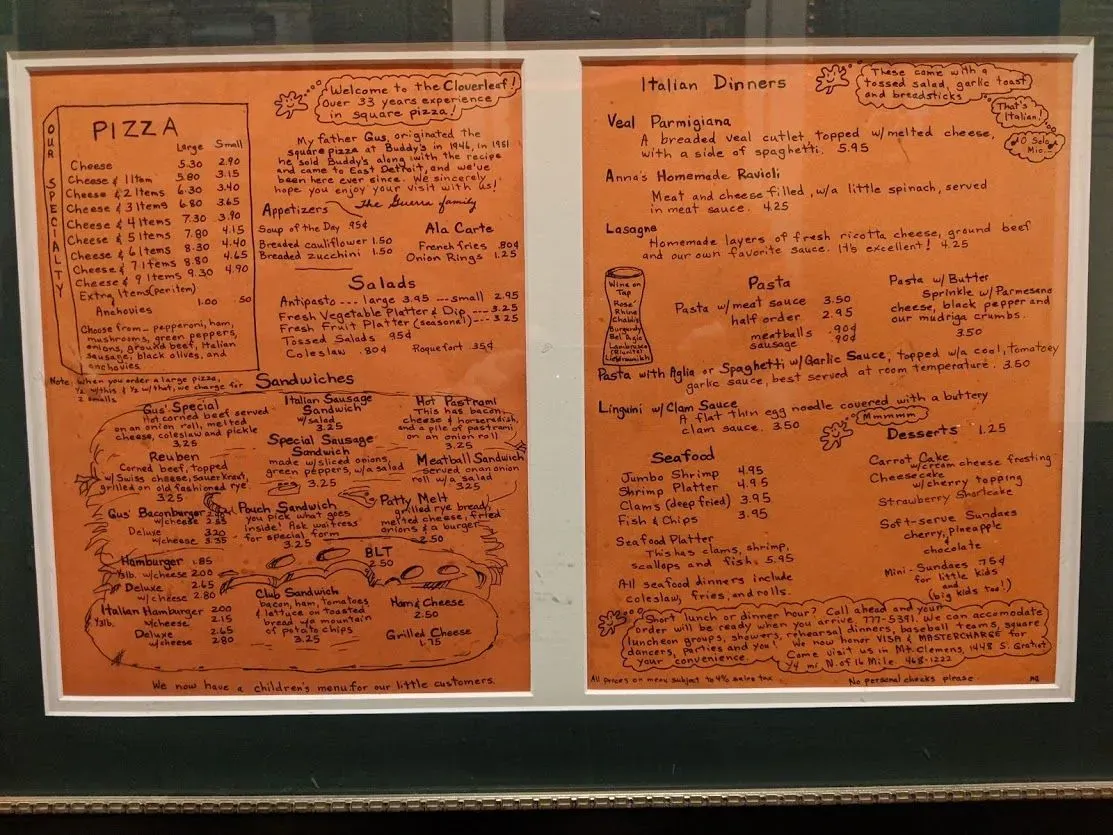 OUR SPECIALTY
PIZZA
Large Small
Cheese 5.30 2.90
Cheese & 1 Item 5.80 3.15
Cheese & 2 Items 6.30 3.40
Cheese & 3 Items 6.80 3.65
Cheese & 4 Items 7.30 3.90
Cheese & 5 Items 7.80 4.15
Cheese & 6 Items 8.30 4.40
Cheese & 7 Items 8.80 4.65
Cheese & 9 Items 9.30 4.90
Extra Items (per item)
1.00 50
Anchovies
Choose from - pepperoni, ham,
mushrooms, green peppers,
onions, ground beef, Italian
sausage, black olives, and
anchovies
Note: when you order a large pizza,
½ w/this & ½ w/that, we charge for
2 smalls
Welcome to the Cloverleaf!
Over 33 years experience
in square pizza!
My father Gus, originated the
square pizza at Buddy's in 1946, in 1951
he sold Buddy's along with the recipe
and came to East Detroit, and we've
been here ever since. We sincerely
hope you enjoy your visit with us!
The Guerra family
Appetizers
Soup of the Day .95¢
Breaded cauliflower 1.50
Breaded zucchini 1.50
Ala Carte
French fries .80¢
Onion Rings 1.25
Salads
Antipasto --- large 3.95 --- small 2.95
Fresh Vegetable Platter & Dip --- 3.25
Fresh Fruit Platter (seasonal) --- 3.25
Tossed Salads 95¢
Coleslaw .80¢ Roquefort .35¢
Sandwiches
Gus' Special
Hot corned beef served
on an onion roll, melted
cheese, coleslaw and pickle
3.25
Italian Sausage
Sandwich
w/salad
3.25
Hot Pastrami
This has bacon,
cheese & horseradish,
and a pile of pastrami
on an onion roll
3.25
Special Sausage
Sandwich
made w/sliced onions,
green peppers, w/a salad
3.25
Reuben
Corned beef, topped
w/Swiss cheese, sauerkraut,
grilled on old fashioned rye.
3.25
Meatball Sandwich
served on an onion
roll w/a salad
3.25
Gus' Baconburger
w/cheese
Deluxe 3.20
w/cheese 3.35
Pouch Sandwich
you pick what goes
inside! Ask waitress
for special form
3.25
Patty Melt
grilled rye bread,
melted cheese, fried
onions & a burger
2.50
Hamburger 1.85
⅓lb. w/cheese 2.00
Deluxe 2.65
w/cheese 2.80
BLT
2.50
Italian Hamburger 2.00
⅓lb. w/cheese 2.15
Deluxe 2.65
w/cheese 2.80
Club Sandwich
bacon, ham, tomatoes
& lettuce on toasted
bread w/a mountain
of potato chips
3.25
Ham & Cheese
2.50
Grilled Cheese
1.75
We now have a children's menu for our little customers.
Italian Dinners
These come with a
tossed salad, garlic toast
and breadsticks
That's
Italian!
O Solo
Mio
Veal Parmigiana
A breaded veal cutlet, topped w/melted cheese,
with a side of spaghetti. 5.95
Anna's Homemade Ravioli
Meat and cheese filled, w/a little spinach, served
in meat sauce. 4.25
Lasagne
Homemade layers of fresh ricotta cheese, ground beef
and our own favorite sauce. It's excellent! 4.25
Wine on
Tap
Rosé
Rhine
Chablis
Burgundy
Bel Agio
Lambrusco
(Riunite)
Liebfraumilch
Pasta
Pasta w/meat sauce 3.50
half order 2.95
meatballs .90¢
sausage .90¢
Pasta w/Butter
Sprinkle w/Parmesano
cheese, black pepper and
our mudriga crumbs.
3.50
Pasta with Aglia or Spaghetti w/Garlic Sauce, topped w/a cool, tomatoey
garlic sauce, best served at room temperature. 3.50
Linguini w/Clam Sauce
A flat thin egg noodle covered with a buttery
clam sauce. 3.50
Mmmmm
Seafood
Jumbo Shrimp 4.95
Shrimp Platter 4.95
Clams (deep fried) 3.95
Fish & Chips 3.95
Seafood Platter
This has clams, shrimp,
scallops and fish. 5.95
All seafood dinners include
coleslaw, fries, and rolls.
Desserts 1.25
Carrot Cake
w/cream cheese frosting
Cheesecake
w/cherry topping
Strawberry Shortcake
Soft-serve Sundaes
cherry, pineapple
chocolate
Mini-Sundaes .75¢
for little kids
and
(big kids too!)
Short lunch or dinner hour? Call ahead and your
order will be ready when you arrive. 777-5391. We can accomodate
luncheon groups, showers, rehearsal dinners, baseball teams, square
dancers, parties and you! We now honor VISA & MASTERCHARGE for
your convenience. Come visit us in Mt. Clemens, 1448 S. Gratiot
¼ mi. N. of 16 Mile 468-1222
All prices on menu subject to 4% sales tax
No personal checks please